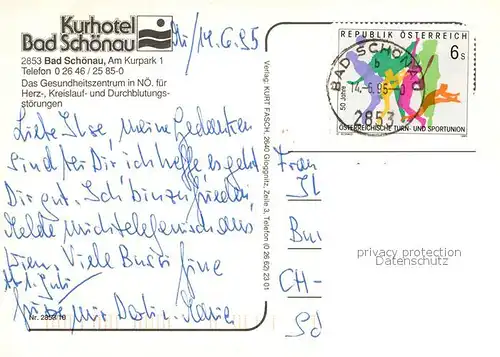 Kurhotel
Bad Schönau
2853 Bad Schönau, Am Kurpark 1
Telefon 0 26 46 / 25 85-0
Das Gesundheitszentrum in NÖ. für
Herz-, Kreislauf- und Durchblutungs-
störungen
Mi/14.6.95
Liebe Ilse, meine Gedanken
sind bei Dir ich hoffe es geht
Dir gut. Ich bin zufrieden,
melde mich telefonisch aus
Wien. Viele Bussi
1. Juli
Nr. 2853/10
Verlag: KURT FASCH, 2640 Gloggnitz, Zeile 3, Telefon (0 26 62) 23 01
REPUBLIK ÖSTERREICH
6 s
50 Jahre
ÖSTERREICHISCHE TURN- UND SPORTUNION
BAD SCHÖNAU
b
14.-6.95
2853
Frau
CH-
privacy protection
Datenschutz